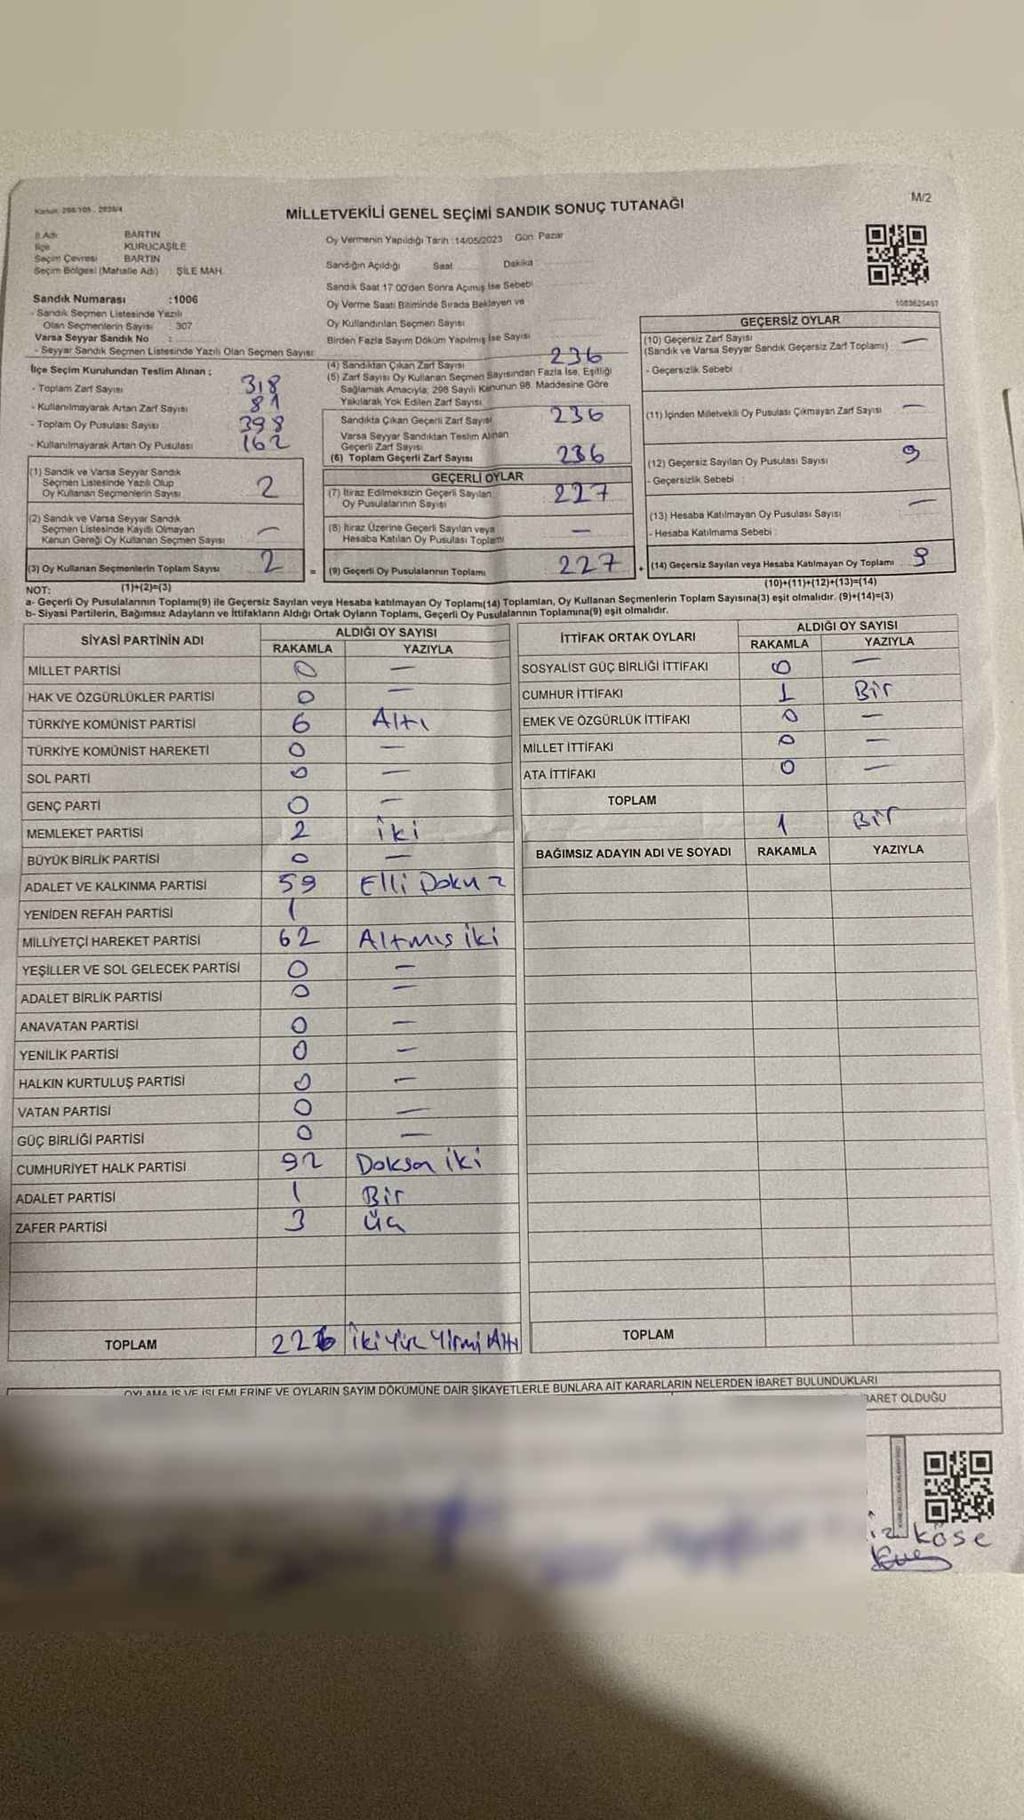 M/2
MİLLETVEKİLİ GENEL SEÇİMİ SANDIK SONUÇ TUTANAĞI
İl Adı BARTIN
İlçe KURUCAŞİLE
Seçim Çevresi BARTIN
Seçim Bölgesi (Mahalle Adı) ŞİLE MAH.
Oy Vermenin Yapıldığı Tarih :14/05/2023 Gün: Pazar
Sandığın Açıldığı Saat Dakika
Sandık Saat 17:00'den Sonra Açımış İse Sebebi
Oy Verme Saati Bitiminde Sırada Bekleyen ve
Oy Kullandırılan Seçmen Sayısı
Birden Fazla Sayım Döküm Yapılmış İse Sayısı
Sandık Numarası :1006
- Sandık Seçmen Listesinde Yazılı
Olan Seçmenlerin Sayısı : 307
Varsa Seyyar Sandık No :
- Seyyar Sandık Seçmen Listesinde Yazılı Olan Seçmen Sayısı
İlçe Seçim Kurulundan Teslim Alınan ;
- Toplam Zarf Sayısı 318
- Kullanılmayarak Artan Zarf Sayısı 81
- Toplam Oy Pusulası Sayısı 398
- Kullanılmayarak Artan Oy Pusulası 162
(1) Sandık ve Varsa Seyyar Sandık
Seçmen Listesinde Yazılı Olup
Oy Kullanan Seçmenlerin Sayısı 2
(2) Sandık ve Varsa Seyyar Sandık
Seçmen Listesinde Kayıtlı Olmayan
Kanun Gereği Oy Kullanan Seçmen Sayısı —
(3) Oy Kullanan Seçmenlerin Toplam Sayısı 2 =
(4) Sandıktan Çıkan Zarf Sayısı 236
(5) Zarf Sayısı Oy Kullanan Seçmen Sayısından Fazla İse, Eşitliği
Sağlamak Amacıyla; 298 Sayılı Kanunun 98. Maddesine Göre
Yakılarak Yok Edilen Zarf Sayısı
Sandıkta Çıkan Geçerli Zarf Sayısı 236
Varsa Seyyar Sandıktan Teslim Alınan
Geçerli Zarf Sayısı
(6) Toplam Geçerli Zarf Sayısı 236
GEÇERLİ OYLAR
(7) İtiraz Edilmeksizin Geçerli Sayılan
Oy Pusulalarının Sayısı 227
(8) İtiraz Üzerine Geçerli Sayılan veya
Hesaba Katılan Oy Pusulası Toplamı —
(9) Geçerli Oy Pusulalarının Toplamı 227 +
1083625457
GEÇERSİZ OYLAR
(10) Geçersiz Zarf Sayısı —
(Sandık ve Varsa Seyyar Sandık Geçersiz Zarf Toplamı)
- Geçersizlik Sebebi
(11) İçinden Milletvekili Oy Pusulası Çıkmayan Zarf Sayısı —
(12) Geçersiz Sayılan Oy Pusulası Sayısı 9
- Geçersizlik Sebebi :
(13) Hesaba Katılmayan Oy Pusulası Sayısı —
- Hesaba Katılmama Sebebi :
(14) Geçersiz Sayılan veya Hesaba Katılmayan Oy Toplamı 9
(10)+(11)+(12)+(13)=(14)
NOT: (1)+(2)=(3)
a- Geçerli Oy Pusulalarının Toplamı(9) ile Geçersiz Sayılan veya Hesaba katılmayan Oy Toplamı(14) Toplamları, Oy Kullanan Seçmenlerin Toplam Sayısına(3) eşit olmalıdır. (9)+(14)=(3)
b- Siyasi Partilerin, Bağımsız Adayların ve İttifakların Aldığı Ortak Oyların Toplamı, Geçerli Oy Pusulalarının Toplamına(9) eşit olmalıdır.
SİYASİ PARTİNİN ADI ALDIĞI OY SAYISI
RAKAMLA YAZIYLA
MİLLET PARTİSİ 0 —
HAK VE ÖZGÜRLÜKLER PARTİSİ 0 —
TÜRKİYE KOMÜNİST PARTİSİ 6 Altı
TÜRKİYE KOMÜNİST HAREKETİ 0 —
SOL PARTİ 0 —
GENÇ PARTİ 0 —
MEMLEKET PARTİSİ 2 İki
BÜYÜK BİRLİK PARTİSİ 0 —
ADALET VE KALKINMA PARTİSİ 59 Elli Dokuz
YENİDEN REFAH PARTİSİ 1
MİLLİYETÇİ HAREKET PARTİSİ 62 Altmış iki
YEŞİLLER VE SOL GELECEK PARTİSİ 0 —
ADALET BİRLİK PARTİSİ 0 —
ANAVATAN PARTİSİ 0 —
YENİLİK PARTİSİ 0 —
HALKIN KURTULUŞ PARTİSİ 0 —
VATAN PARTİSİ 0 —
GÜÇ BİRLİĞİ PARTİSİ 0 —
CUMHURİYET HALK PARTİSİ 92 Doksan iki
ADALET PARTİSİ 1 Bir
ZAFER PARTİSİ 3 Üç
TOPLAM 226 İkiYüz Yirmi Altı
İTTİFAK ORTAK OYLARI ALDIĞI OY SAYISI
RAKAMLA YAZIYLA
SOSYALİST GÜÇ BİRLİĞİ İTTİFAKI 0 —
CUMHUR İTTİFAKI 1 Bir
EMEK VE ÖZGÜRLÜK İTTİFAKI 0 —
MİLLET İTTİFAKI 0 —
ATA İTTİFAKI 0 —
TOPLAM 1 Bir
BAĞIMSIZ ADAYIN ADI VE SOYADI RAKAMLA YAZIYLA
TOPLAM
OYLAMA İŞ VE İŞLEMLERİNE VE OYLARIN SAYIM DÖKÜMÜNE DAİR ŞİKAYETLERLE BUNLARA AİT KARARLARIN NELERDEN İBARET BULUNDUKLARI
BARET OLDUĞU
köse